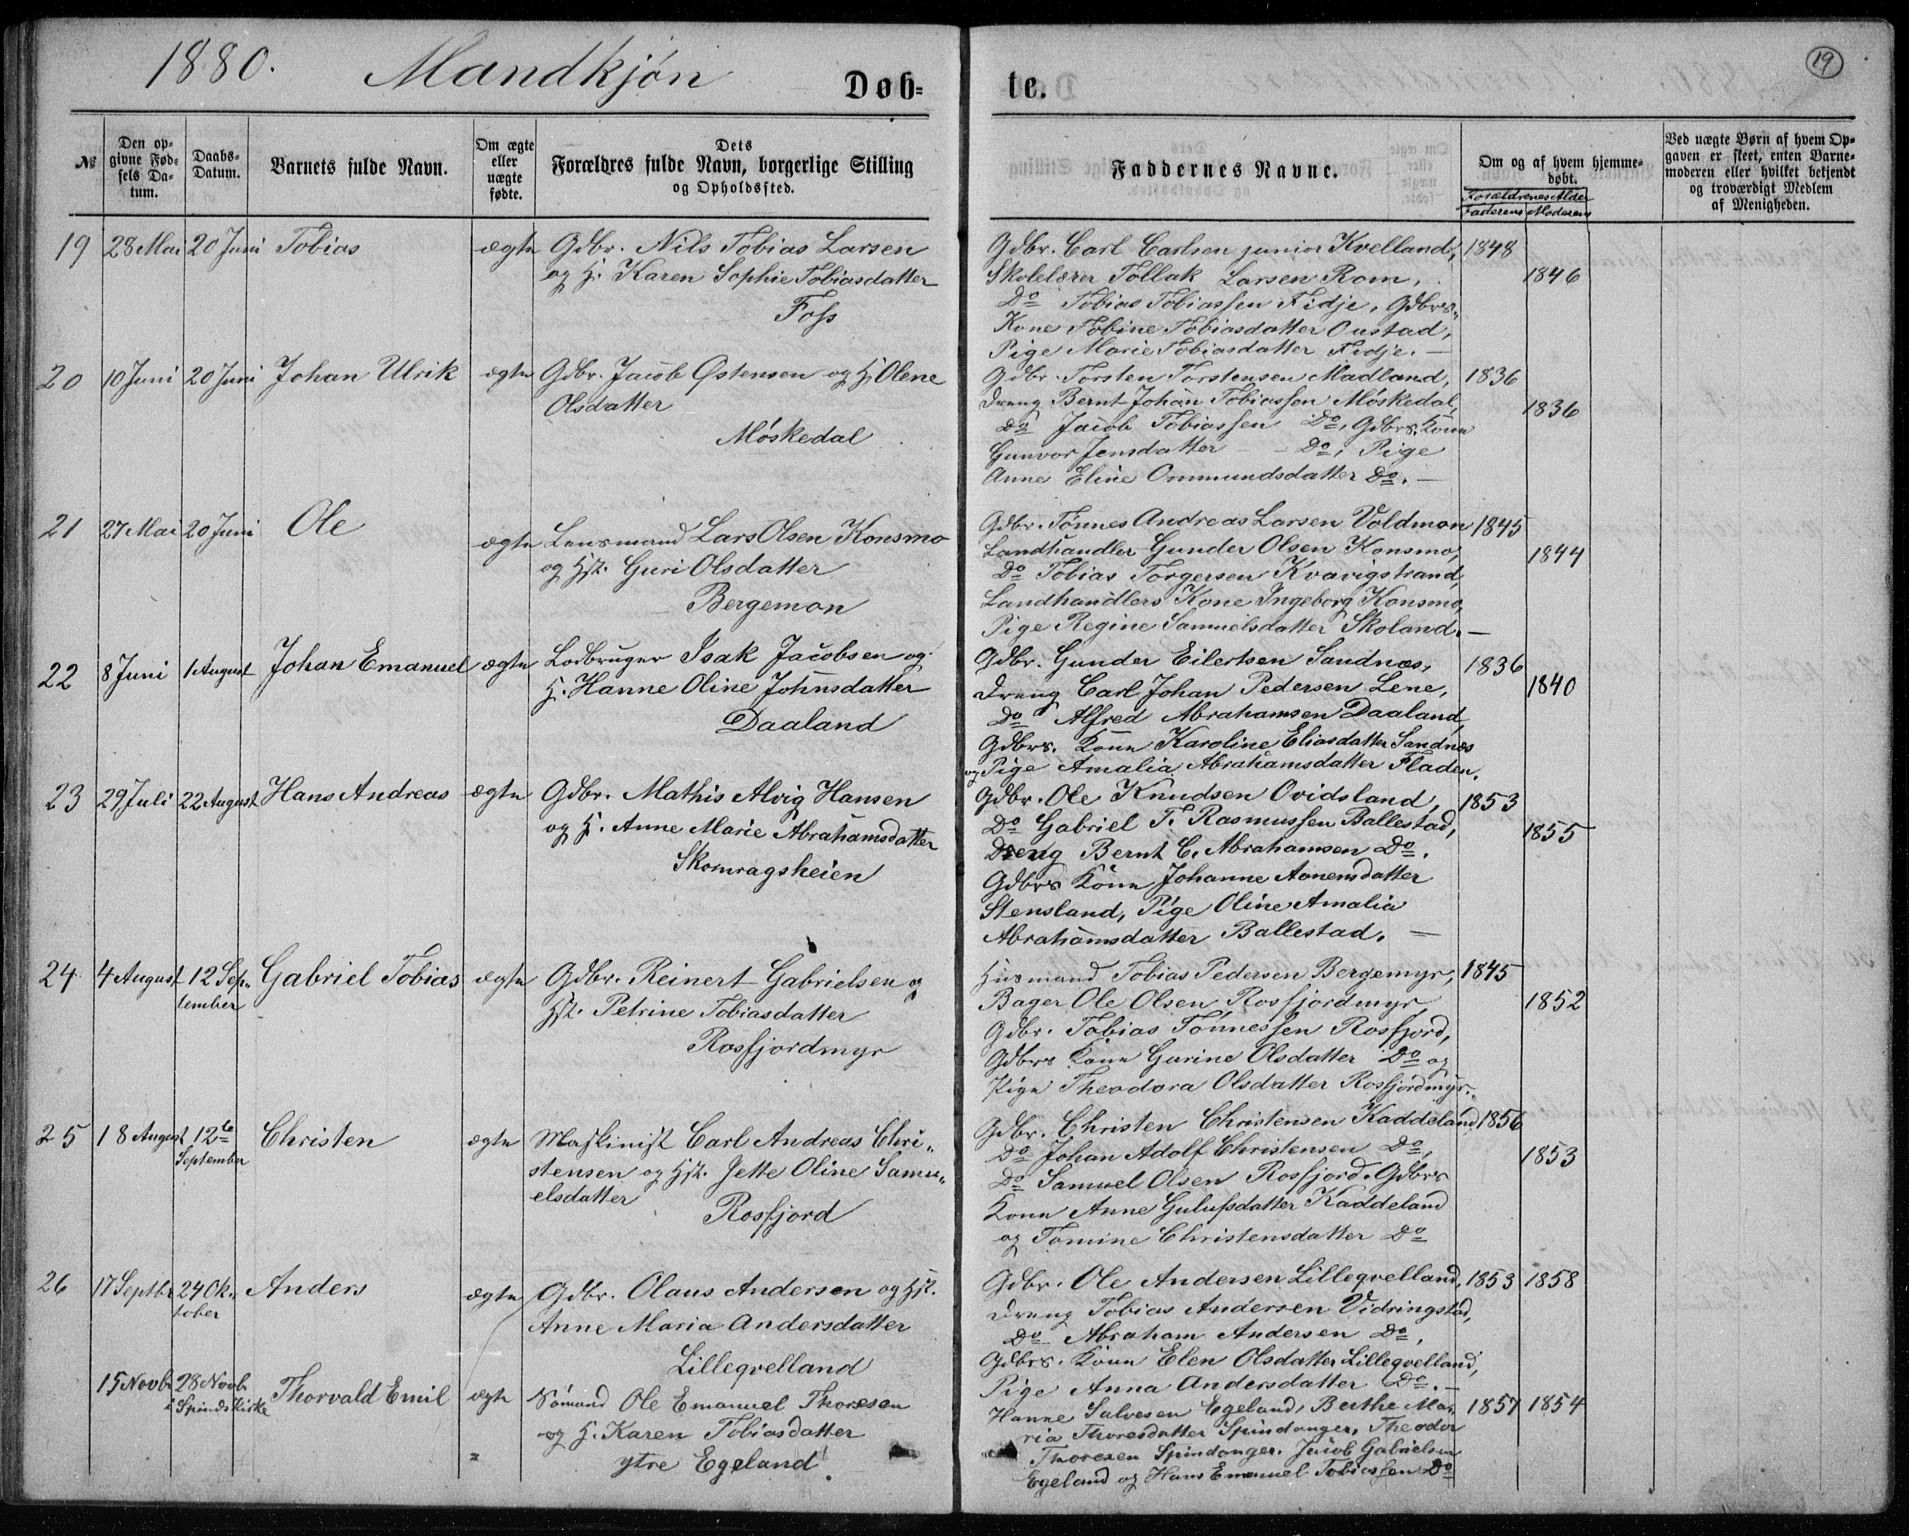 1880. Mandkjön
Døb=
te.
19
№
Den op-
givne Fød-
sels Da-
tum.
Daabs-
Datum.
Barnets fulde Navn.
Om ægte
eller
uægte
fødte.
Dets
Forældres fulde Navn, borgerlige Stilling
og Opholdssted.
Faddernes Navne.
Om og af hvem hjemme-
døbt.
Forældrenes Alder
Faderens Moderens
Ved uægte Børn af hvem Op-
gaven er skeet, enten Barne-
moderen eller hvilket bekjendt
og troværdigt Medlem
af Menigheden.
19 28 Mai 20 Juni Tobias ægte Gdbr. Nils Tobias Larsen
og H. Karen Sophie Tobiasdatter
Foss
Gdbr. Carl Carlsen junior Kvelland, 1848
Skolelærer Tollak Larsen Rom, 1846
Do Tobias Tobiassen Fidje, Gdbrs-
Kone Tobine Tobiasdatter Oustad,
Pige Marie Tobiasdatter Fidje. —
20 10 Juni 20 Juni Johan Ulrik ægte Gdbr. Jacob Østensen og H. Olene
Olsdatter
Møskedal
Gdbr. Torsten Torstensen Madland, 1836
Dreng Bernt Johan Tobiassen Møskedal, 1836
Do Jacob Tobiassen Do, Gdbrs. Kone
Gunvor Jensdatter — Do, Pige
Anne Eline Ommundsdatter Do. —
21 27 Mai 20 Juni Ole ægte Lensmand Lars Olsen Konsmo
og Hst. Guri Olsdatter
Bergemon
Gdbr. Tønnes Andreas Larsen Voldmon 1845
Landhandler Gunder Olsen Konsmo, 1844
Do Tobias Torgersen Kvavigstrand,
Landhandlers Kone Ingeborg Konsmo,
Pige Regine Samuelsdatter Skoland. —
22 8 Juni 1 August Johan Emanuel ægte Lodbruger Isak Jacobsen og
H. Hanne Oline Johnsdatter
Daaland
Gdbr. Gunder Eilertsen Sandnæs, 1836
Dreng Carl Johan Pedersen Lene, 1840
Do Alfred Abrahamsen Daaland,
Gdbrs. Kone Karoline Eliasdatter Sandnæs
og Pige Amalia Abrahamsdatter Fladen.
23 29 Juli 22 August Hans Andreas ægte Gdbr. Mathis Alvig Hansen
og H. Anne Marie Abrahamsdatter
Skomragsheien
Gdbr. Ole Knudsen Ovidsland, 1853
Do Gabriel T. Rasmussen Ballestad, 1855
Dreng Bernt C. Abrahamsen Do.
Gdbrs Kone Johanne Aanensdatter
Stensland, Pige Oline Amalia
Abrahamsdatter Ballestad. —
24 4 August 12 Sep-
tember Gabriel Tobias ægte Gdbr. Reinert Gabrielsen og
Hst. Petrine Tobiasdatter
Rosfjordmyr
Husmand Tobias Pedersen Bergemyr, 1845
Bager Ole Olsen Rosfjordmyr, 1852
Gdbr. Tobias Tönnessen Rosfjord,
Gdbrs Kone Gurine Olsdatter Do og
Pige Theodora Olsdatter Rosfjordmyr.
25 18 August 12te
September Christen ægte Maskinist Carl Andreas Chri-
stensen og Hst. Jette Oline Samu-
elsdatter
Rosfjord
Gdbr. Christen Christensen Kaddeland 1856
Do Johan Adolf Christensen Do, 1853
Do Samuel Olsen Rosfjord. Gdbrs
Kone Anne Gulufsdatter Kaddeland
og Tomine Christensdatter Do
26 17 Septbr 24 Ok-
tober Anders ægte Gdbr. Olaus Andersen og Hst.
Anne Maria Andersdatter
Lilleqvelland
Gdbr. Ole Andersen Lilleqvelland, 1853 1858
Dreng Tobias Andersen Vidringstad,
Do Abraham Andersen Do,
Gdbrs. Kone Elen Olsdatter Lilleqvelland,
Pige Anna Andersdatter Do. —
15 Novbr 28 Novb
i Spinds Kirke Thorvald Emil ægte Sømand Ole Emanuel Thoresen
og H. Karen Tobiasdatter
ytre Egeland.
Hanne Salvesen Egeland, Berthe Ma- 1857 1854
ria Thoresdatter Spindanger, Theodor
Thoresen Spindanger. Jacob Gabrielsen
Egeland og Hans Emanuel Tobiassen Do